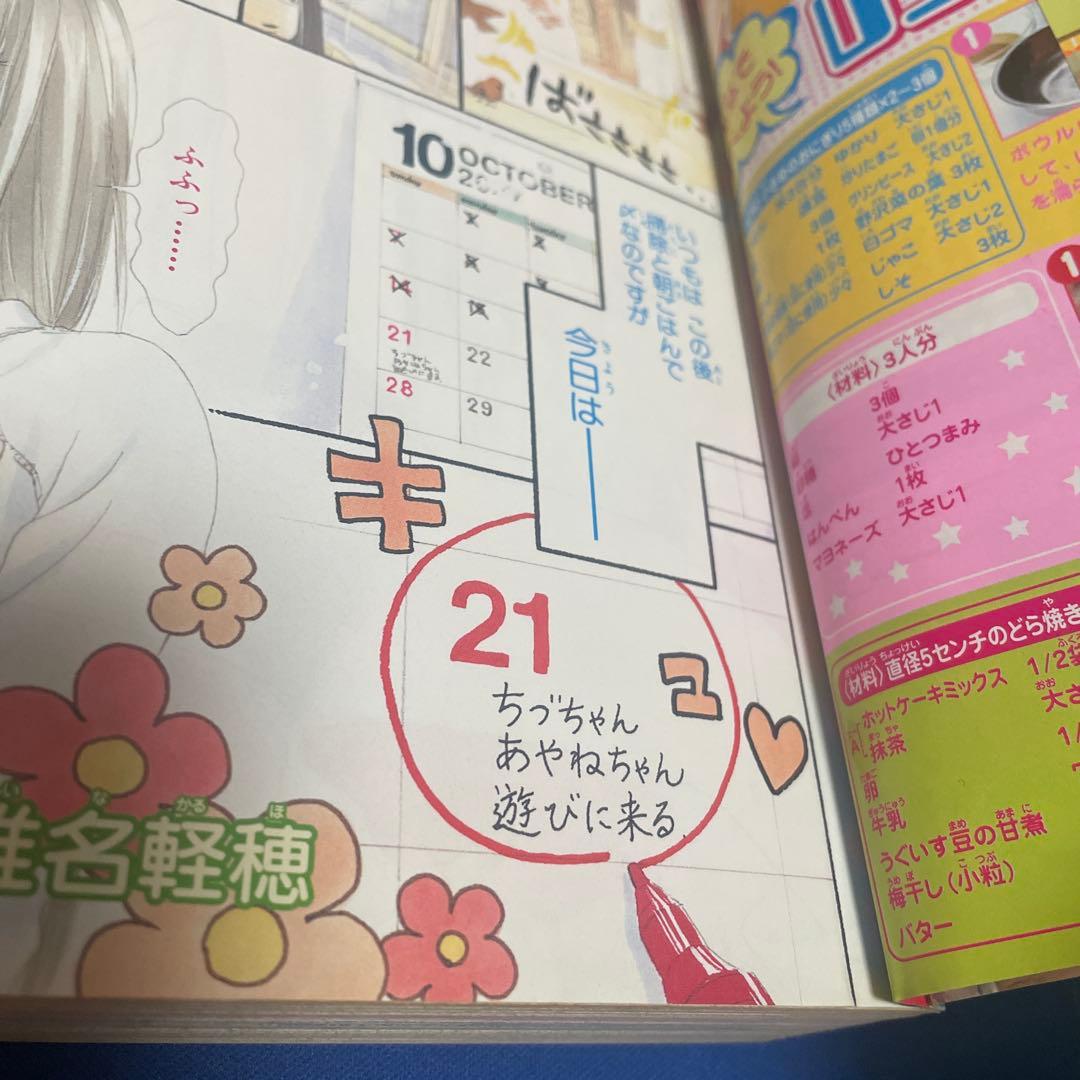 ばさささ・・
10 OCTOBER
sunday
21
22
28
29
いつもは この後
掃除と朝ごはんで
〆なのですが
今日は――
ふふっ……
キュ
21
ちづちゃん
あやねちゃん
遊びに来る
椎名軽穂
1
ゆかり 大さじ1
炒りたまご 卵1個分
グリンピース 大さじ2
野沢菜の葉 3枚
白ゴマ 大さじ1
じゃこ 大さじ2
しそ 3枚
3個
1枚
ボウル
して、
1
〈材料〉3人分
3個
大さじ1
ひとつまみ
1枚
はんぺん
マヨネーズ 大さじ1
〈材料〉直径5センチのどら焼き
ホットケーキミックス 1/2袋
A 抹茶
卵
牛乳
うぐいす豆の甘煮
梅干し(小粒)
バター